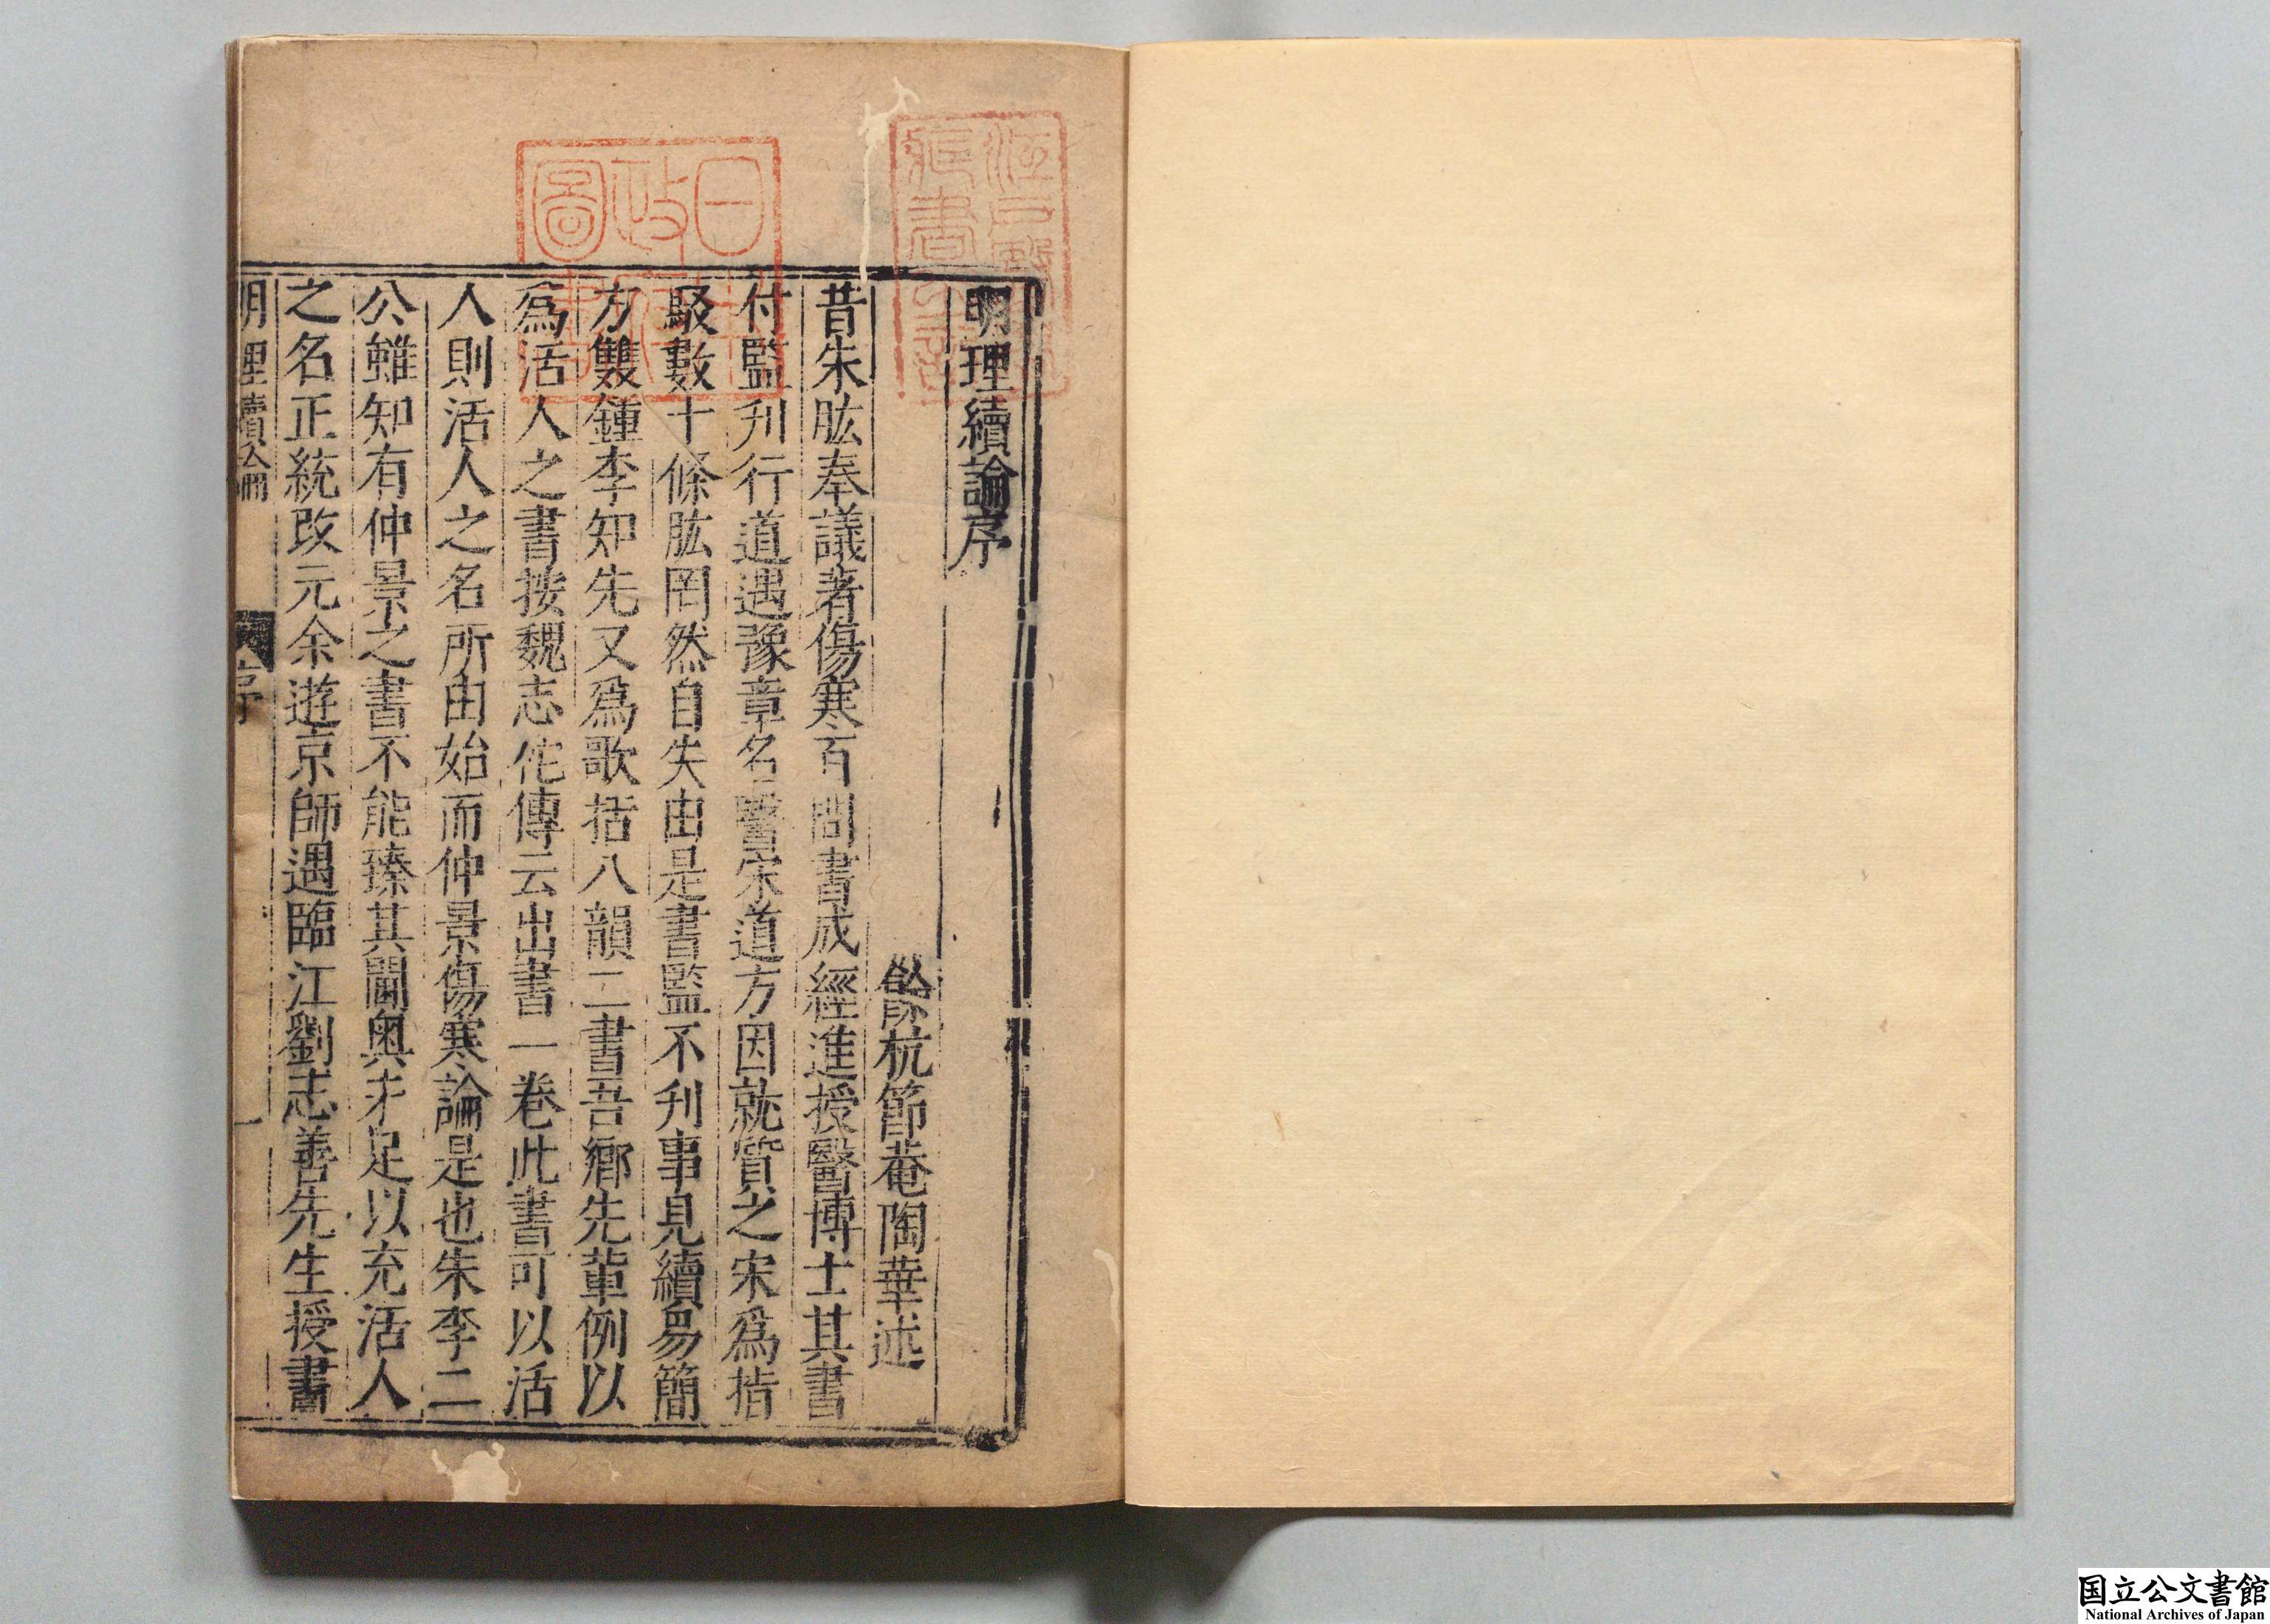 明理續論序
餘杭節菴陶華述
昔朱肱奉議著傷寒百問書成經進授醫博士其書
付監刋行道遇豫章名醫宋道方因就質之宋爲指
駁數十條肱罔然自失由是書監不刋事見續易簡
方雙鍾李知先又爲歌括八韻二書吾鄉先輩例以
爲活人之書按魏志佗傳云出書一卷此書可以活
人則活人之名所由始而仲景傷寒論是也朱李二
公雖知有仲景之書不能臻其閫奥未足以充活人
之名正統改元余遊京師遇臨江劉志善先生授書
明理續論
序
一
日本
政府
圖書
国立公文書館
National Archives of Japan